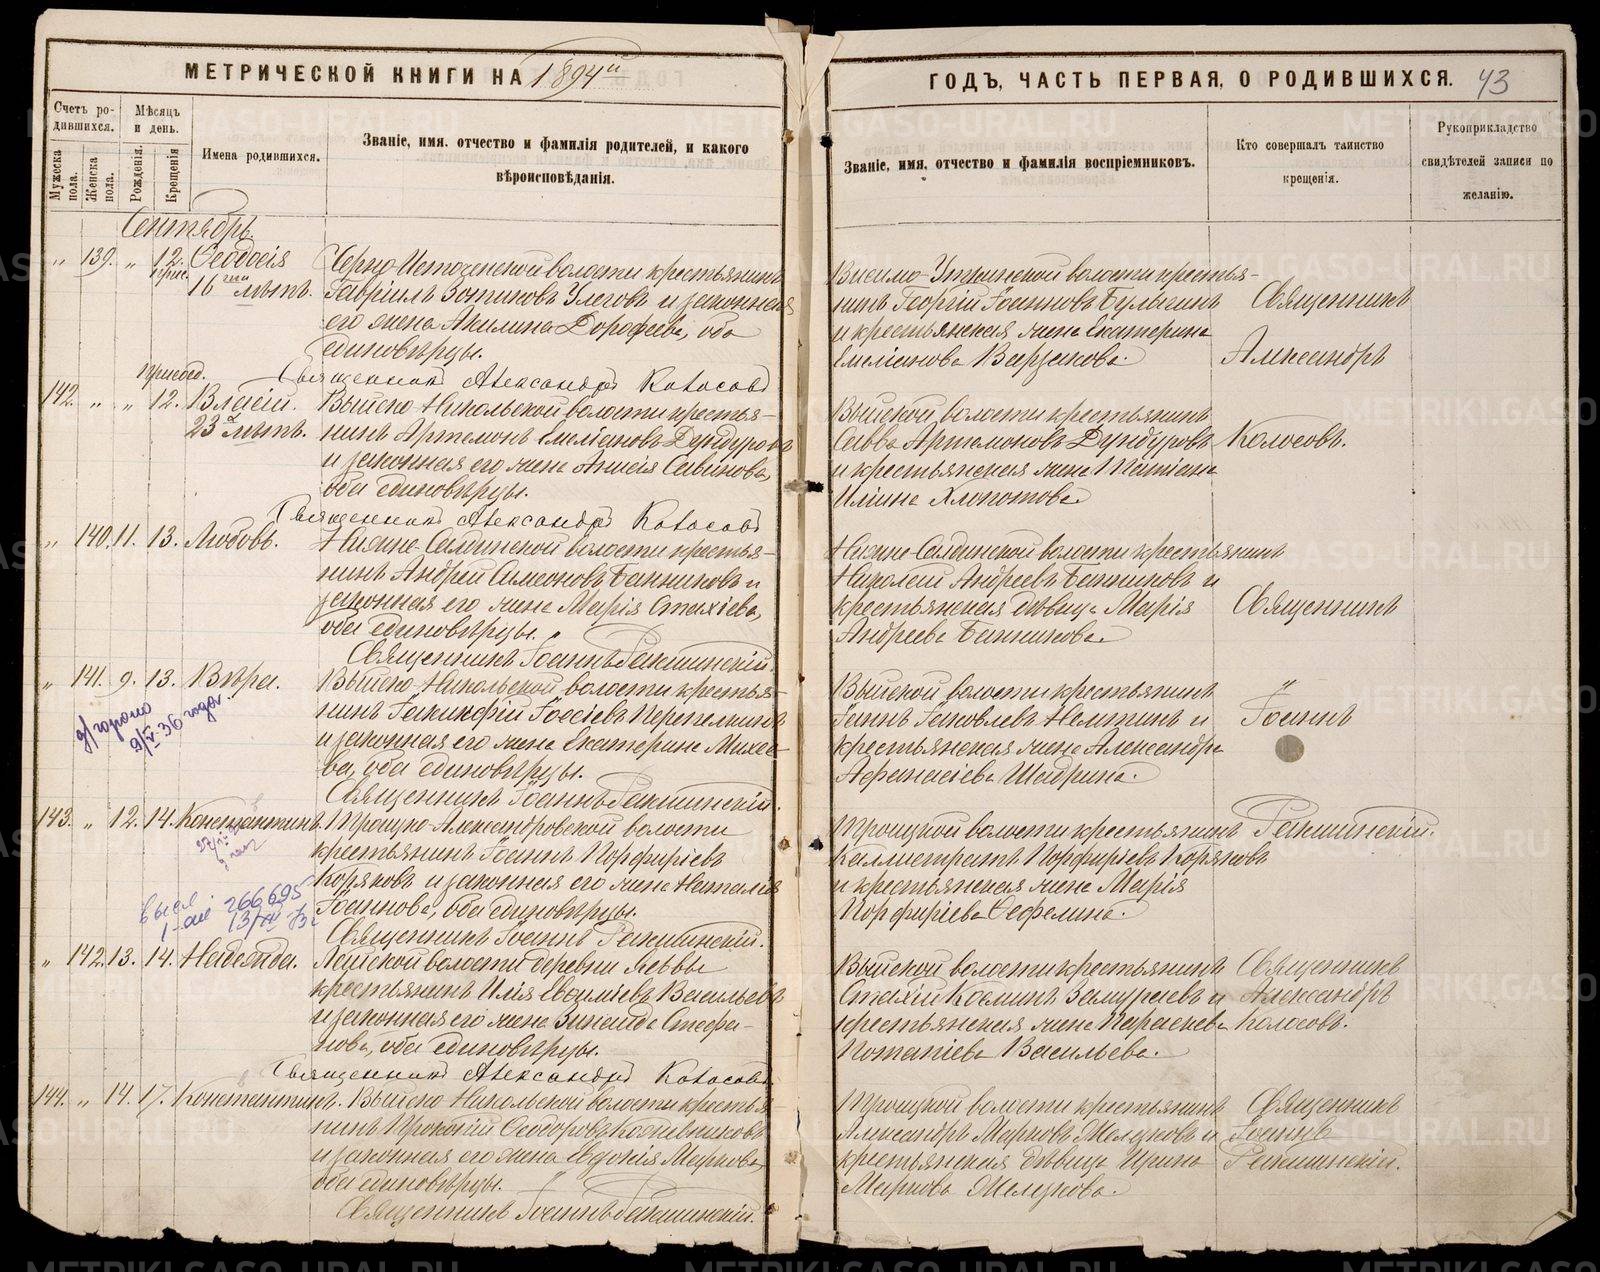 МЕТРИЧЕСКОЙ КНИГИ НА 1894й
ГОДЪ, ЧАСТЬ ПЕРВАЯ, О РОДИВШИХСЯ. 43
Счетъ родившихся.
Мужеска пола.
Женска пола.
Мѣсяцъ и день.
Рожденія.
Крещенія
Имена родившихся.
Званіе, имя, отчество и фамилія родителей, и какого
вѣроисповѣданія.
Званіе, имя, отчество и фамилія воспріемниковъ.
Кто совершалъ таинство
крещенія.
Рукоприкладство
свидѣтелей записи по
желанію.
Сентябрь.
„ 139. „ 12. Ѳеодосія
16 лѣтъ.
Черно-Источенской волости крестьянинъ
Гавріилъ Зотиковъ Улеговъ и законная
его жена Акилина Дорофеева, оба
единовѣрцы.
Священникъ Александръ Колосовъ
Висимо-Уткинской волости крестья-
нинъ Георгій Іоанновъ Булыгинъ
и крестьянская жена Екатерина
Емеліанова
Священникъ
Александръ
Колосовъ.
142. „ „ 12. присоед. Власій.
23 лѣтъ.
Выйско-Никольской волости крестья-
нинъ Артемонъ Емеліановъ Дундуровъ
и законная его жена Анисія Савинова,
оба единовѣрцы.
Священникъ Александръ Колосовъ
Выйской волости крестьянинъ
Савва Артамоновъ Дундуровъ
и крестьянская жена Татіана
Илiина Хлопотова
„ 140. 11. 13. Любовь.
Нижне-Салдинской волости крестья-
нинъ Андрей Симеоновъ Банниковъ и
законная его жена Марія Стахіева,
оба единовѣрцы.
Священникъ Іоаннъ Ракшинскій.
Нижне-Салдинской волости крестьянинъ
Николай Андреевъ Банниковъ и
крестьянская дѣвица Марія
Андреева Банникова.
Священникъ
Іоаннъ
Ракшинскій.
„ 141. 9. 13. Вѣра.
9/V 36 года.
Выйско-Никольской волости крестья-
нинъ Іакинфій Іоасіевъ Перепелкинъ
и законная его жена Екатерина Михее-
ва, оба единовѣрцы.
Священникъ Іоаннъ Ракшинскій.
Выйской волости крестьянинъ
Іаннъ Іаковлевъ и
крестьянская жена Александра
Афанасіева Шадрина.
143. „ 12. 14. Константинъ.
266695
Троицко-Александровской волости
крестьянинъ Іоаннъ Порфиріевъ
Коряковъ и законная его жена Наталія
Іоаннова, оба единовѣрцы.
Священникъ Іоаннъ Ракшинскій.
Троицкой волости крестьянинъ
Каллистратъ Порфиріевъ Коряковъ
и крестьянская жена Марія
Порфиріева
„ 142. 13. 14. Надежда.
Лайской волости деревни
крестьянинъ Илія Евфиміевъ Васильевъ
и законная его жена Зинаида Стефа-
нова, оба единовѣрцы.
Священникъ Александръ Колосовъ
Выйской волости крестьянинъ
Стахій Косминъ Замураевъ и
крестьянская жена Параскева
Потапіева Васильева.
Священникъ
Александръ
Колосовъ.
144. „ 14. 17. Константинъ.
Выйско-Никольской волости крестья-
нинъ Прокопій Ѳеодоровъ Кожевниковъ
и законная его жена Евдокія Маркова,
оба единовѣрцы.
Священникъ Іоаннъ Ракшинскій.
Троицкой волости крестьянинъ
Александръ Марковъ Желуковъ и
крестьянская дѣвица Ирина
Маркова Желукова.
Священникъ
Іоаннъ
Ракшинскій.
METRIKI.GASO-URAL.RU